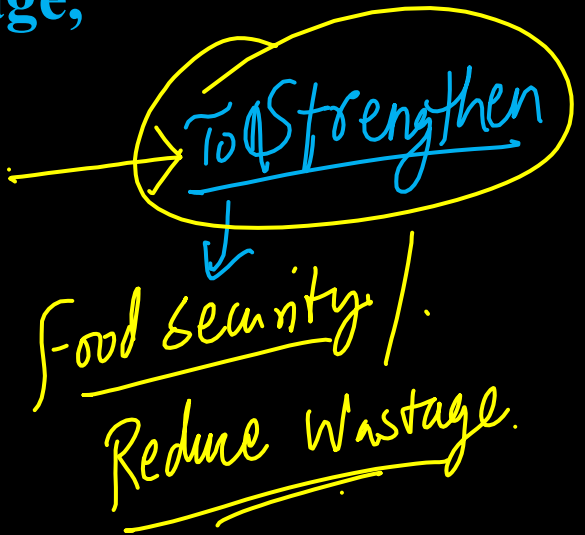 age,
To Strengthen
Food security /.
Reduce Wastage.